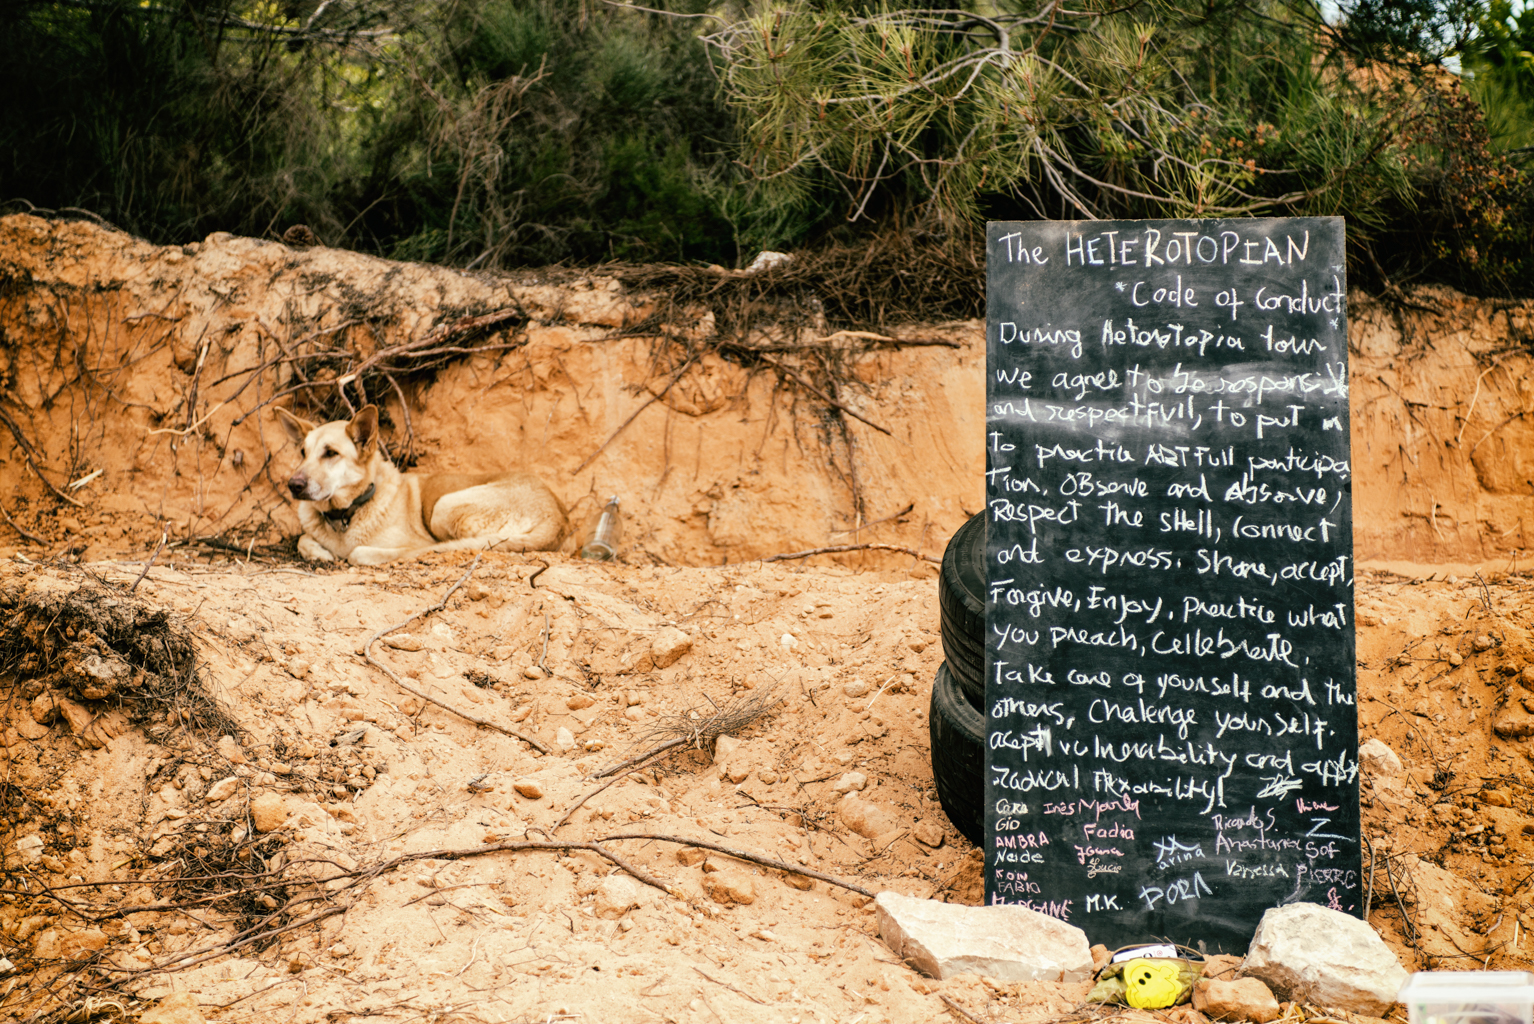 The HETEROTOPIAN
*Code of Conduct*
During Heterotopia tour
we agree to be responsible
and respectfull, to put in
to practice ARTFull participa
Tion. OBserve and Absorve,
Respect the sHell, connect
and express. Share, accept,
Forgive, Enjoy, practice what
you preach, Cellebrate.
Take care of yourself and the
others, Chalenge yourself.
acept vulnerability and apply
radical flexability!
Inês Marly
Gio
AMBRA Fadia Ricardo S. Z
Neide Anastasia Sof
arina
Lucio Vanessa PIERRE
FABIO
MORGANE M.K. DORA